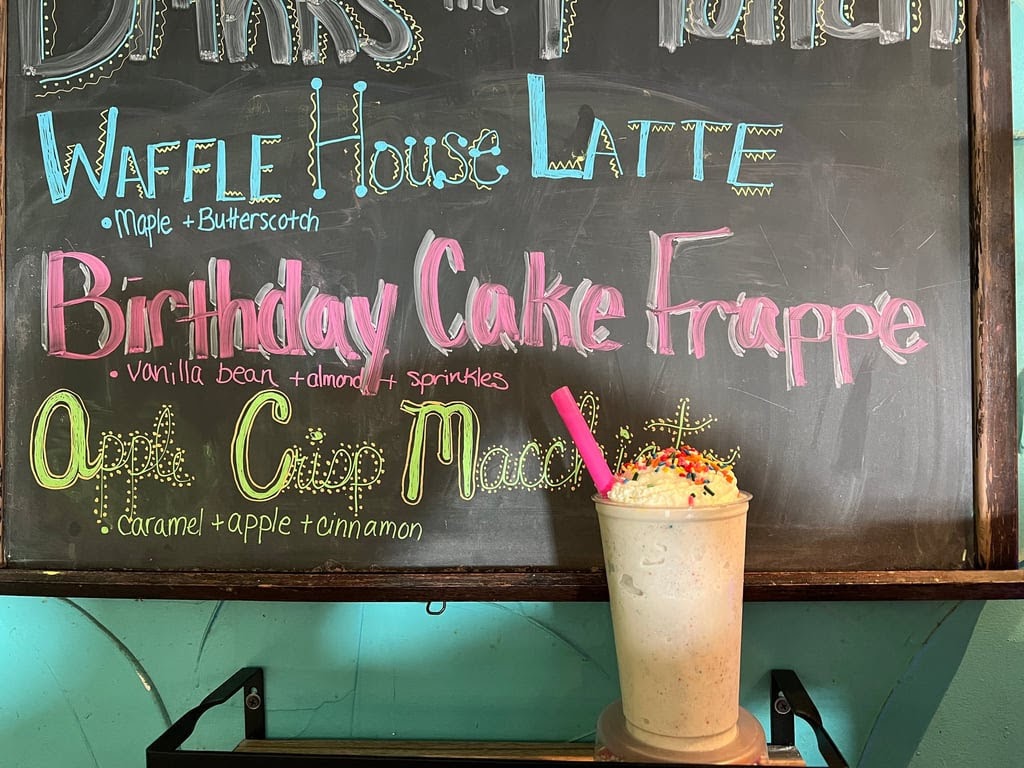 Drinks of the Month
Waffle House Latte
• Maple + Butterscotch
Birthday Cake Frappe
• vanilla bean + almond + sprinkles
Apple Crisp Macchiato
• caramel + apple + cinnamon